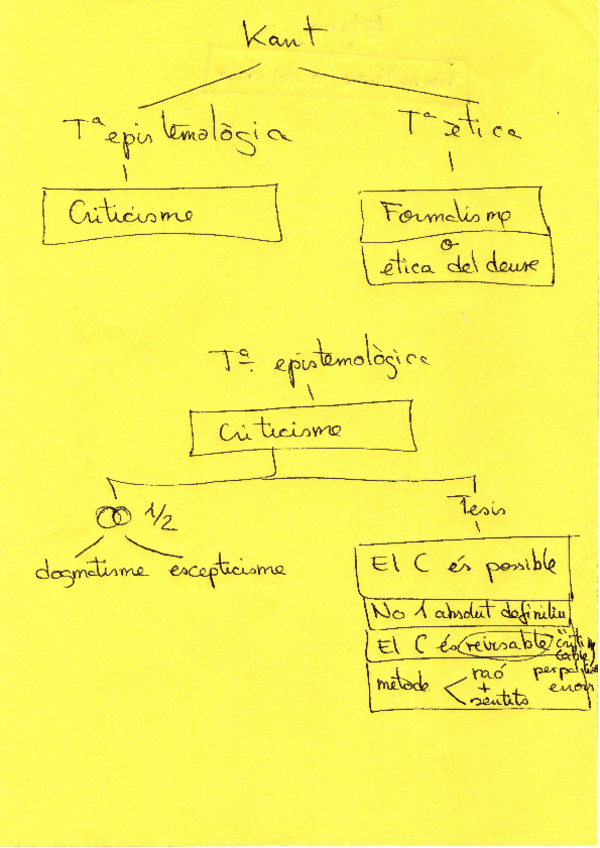 Kant
Tª epistemològica
Tª ètica
Criticisme
Formalisme
o
ètica del deure
Tª epistemològica
Criticisme
1/2
Tesis
dogmatisme escepticisme
El C és possible
No 1 absolut definitiu
El C és revisable "criti
cable)
mètode raó
+
sentits
errors